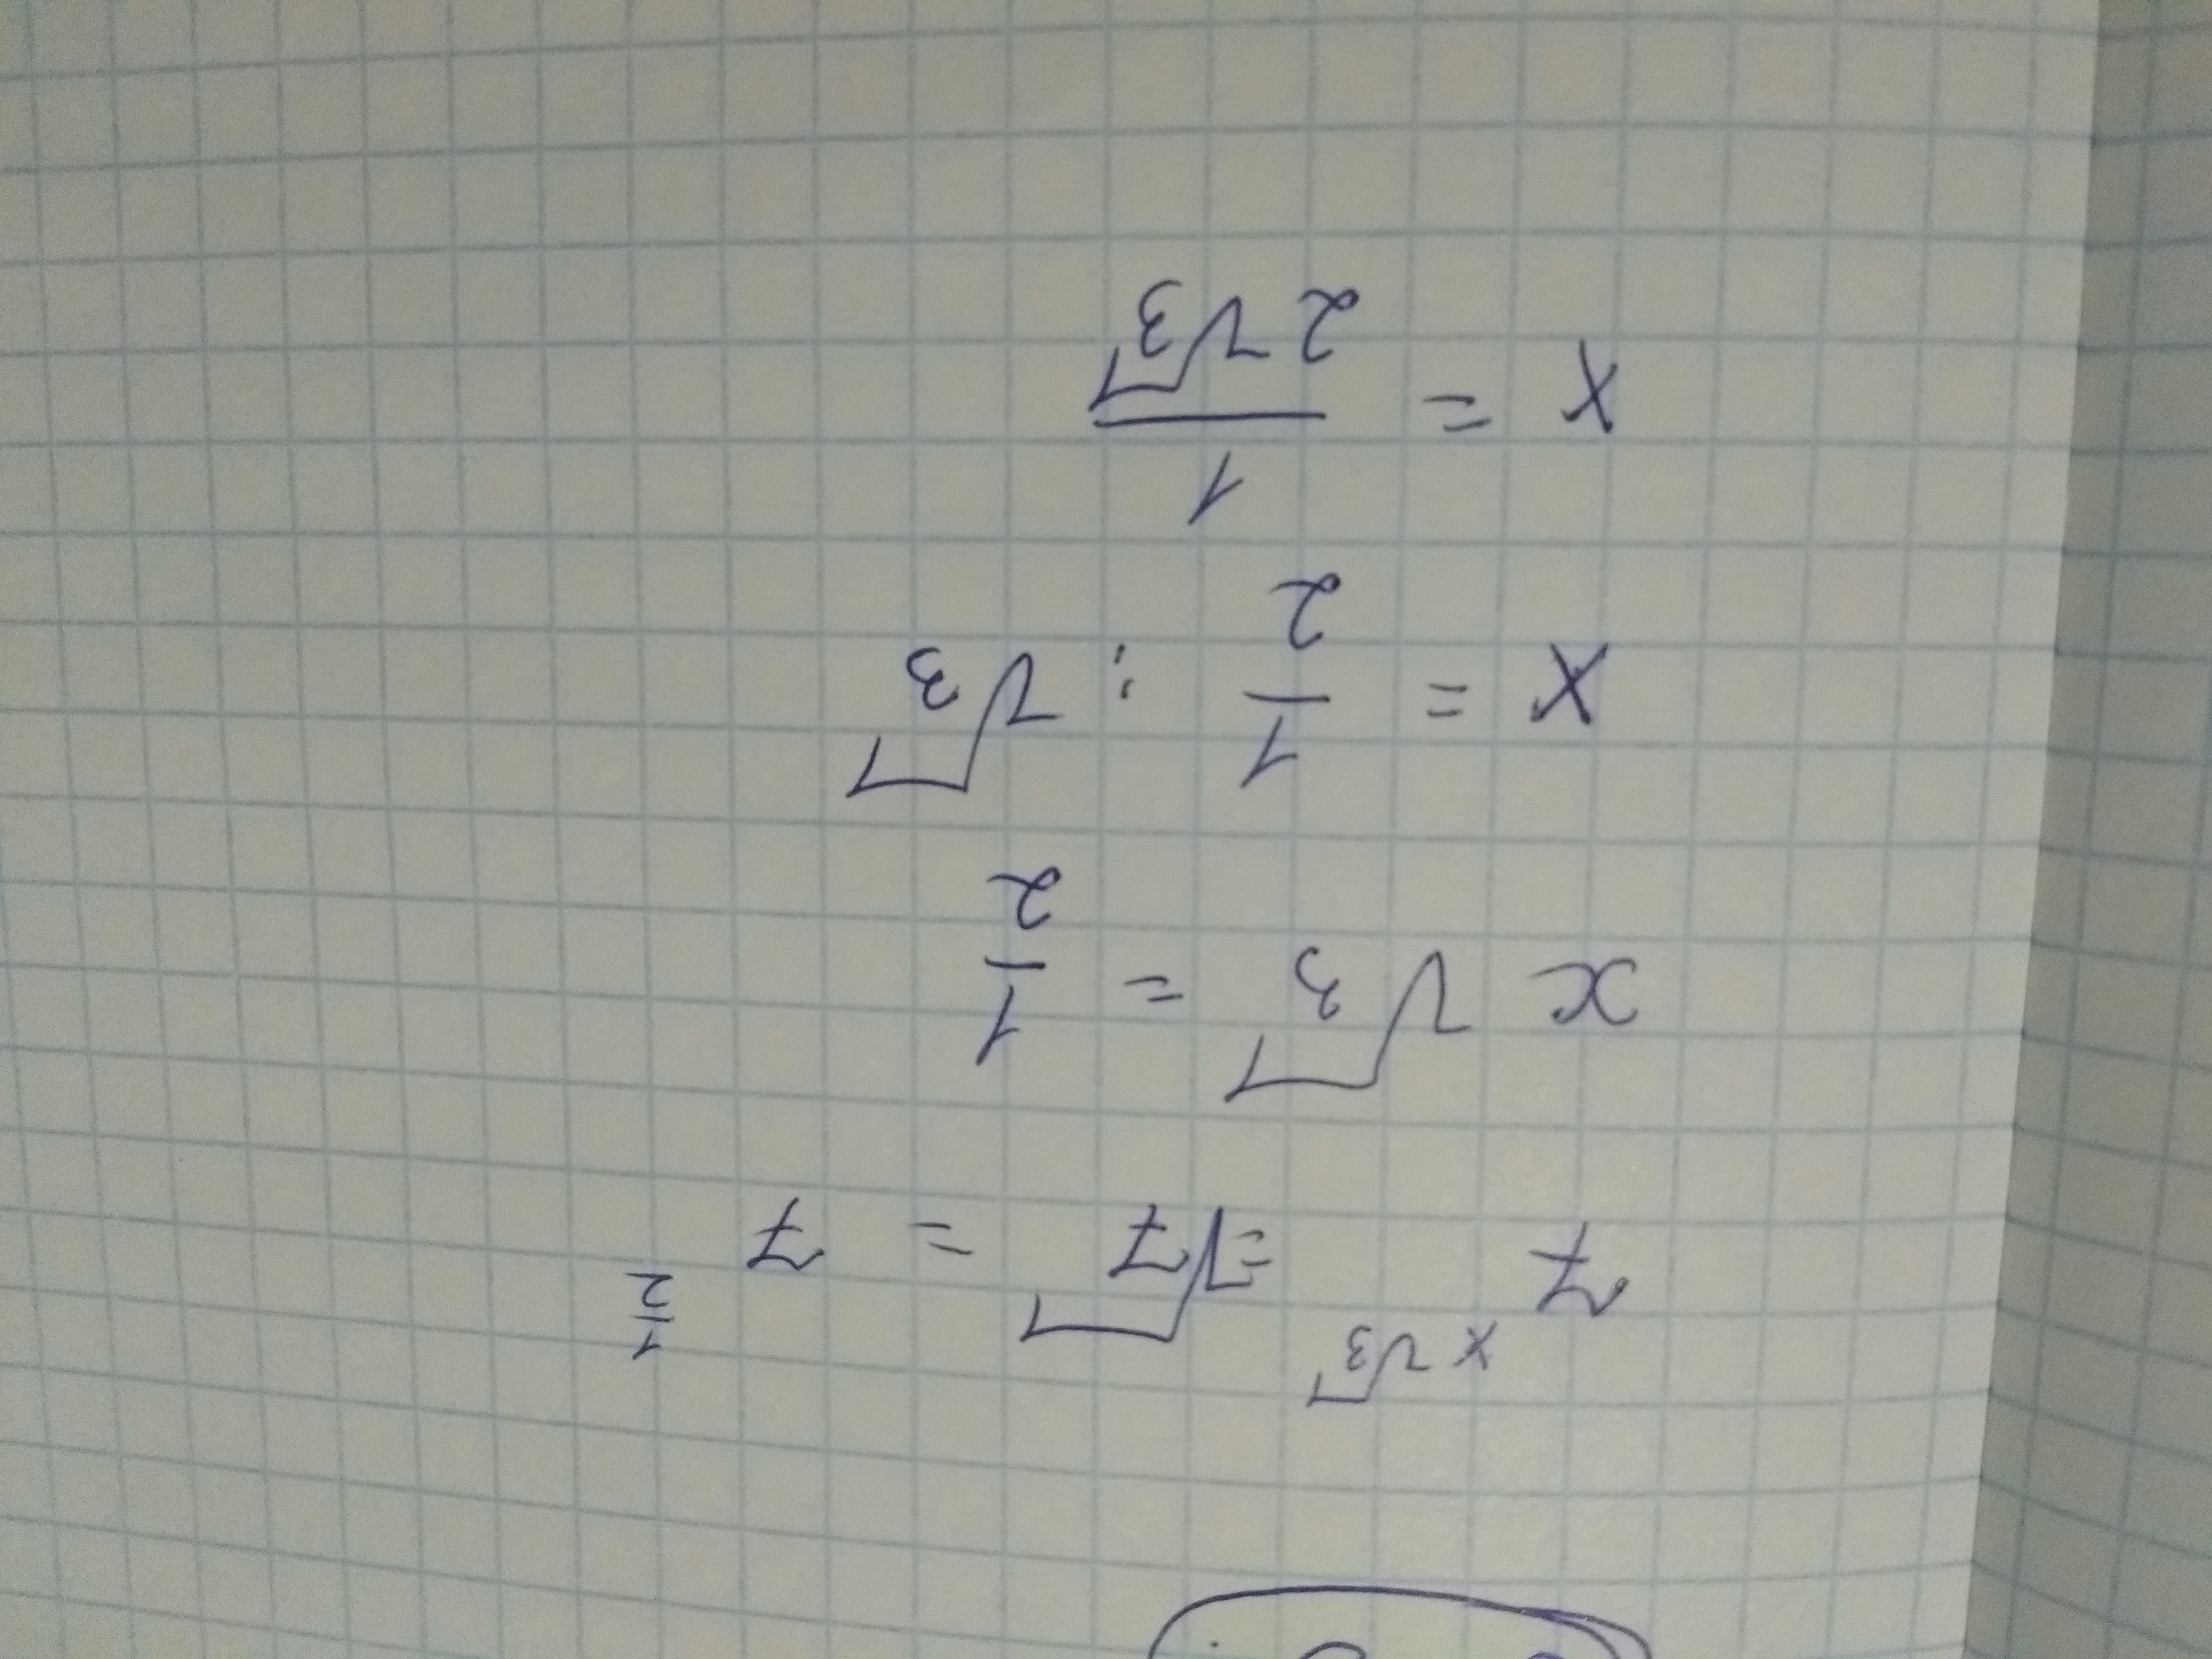 7^{x√3} = √7 = 7^{1/2}
x √3 = 1/2
x = 1/2 : √3
x = 1/(2√3)